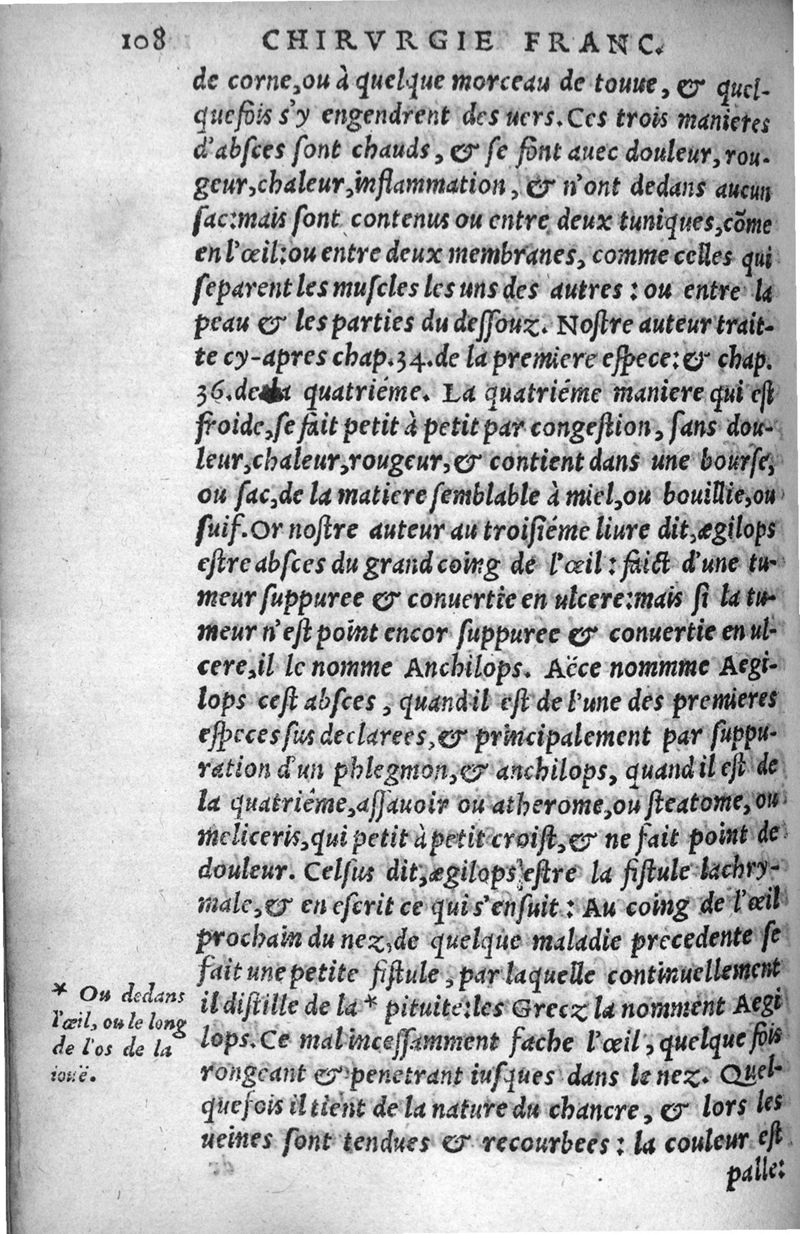 108 CHIRVRGIE FRANC.
de corne, ou à quelque morceau de touue, & quel-
quefois s'y engendrent des uers. Ces trois manieres
d'absces sont chauds, & se font auec douleur, rou-
geur, chaleur, inflammation, & n'ont dedans aucun
sac: mais sont contenus ou entre deux tuniques, cõme
en l'œil: ou entre deux membranes, comme celles qui
separent les muscles les uns des autres: ou entre la
peau & les parties du dessouz. Nostre auteur trait-
te cy-apres chap. 34. de la premiere espece: & chap.
36. de la quatriéme. La quatriéme maniere qui est
froide, se fait petit à petit par congestion, sans dou-
leur, chaleur, rougeur, & contient dans une bourse,
ou sac, de la matiere semblable à miel, ou bouillie, ou
suif. Or nostre auteur au troisiéme liure dit, ægilops
estre absces du grand coing de l'œil: faict d'une tu-
meur suppuree & conuertie en ulcere: mais si la tu-
meur n'est point encor suppuree & conuertie en ul-
cere, il le nomme Anchilops. Aëce nommme Aegi-
lops cest absces, quand il est de l'une des premieres
especes sus declarees, & principalement par suppu-
ration d'un phlegmon, & anchilops, quand il est de
la quatriéme, assauoir ou atherome, ou steatome, ou
meliceris, qui petit à petit croist, & ne fait point de
douleur. Celsus dit, ægilops estre la fistule lachry-
male, & en escrit ce qui s'ensuit: Au coing de l'œil
prochain du nez, de quelque maladie precedente se
fait une petite fistule, par laquelle continuellement
il distille de la * pituite: les Grecz la nomment Aegi
lops. Ce mal incessamment fache l'œil, quelque fois
rongeant & penetrant iusques dans le nez. Quel-
quefois il tient de la nature du chancre, & lors les
ueines sont tendues & recourbees: la couleur est
palle:
* Ou dedans
l'œil, ou le long
de l'os de la
iouë.